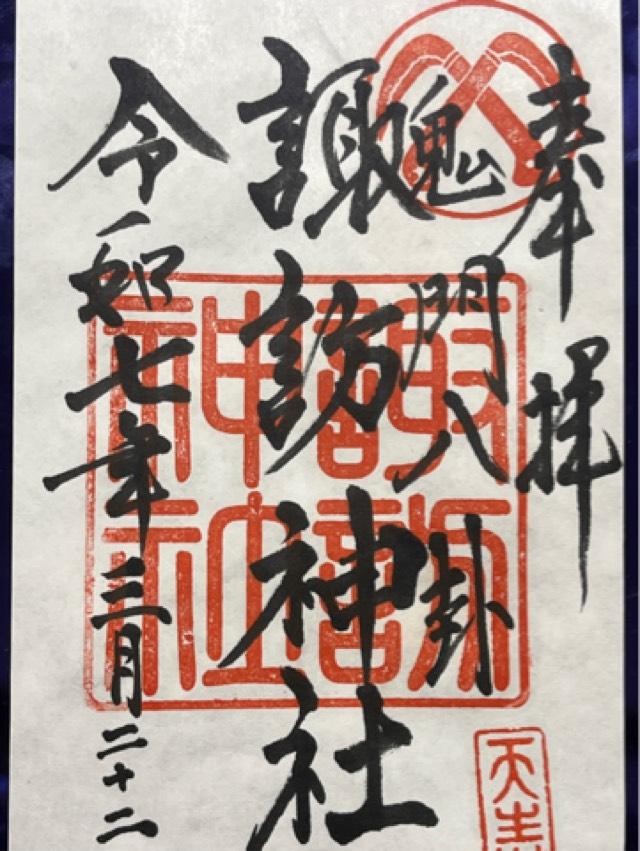 奉拝
鬼門八卦
諏訪神社
令和七年三月二十二
諏訪
神社